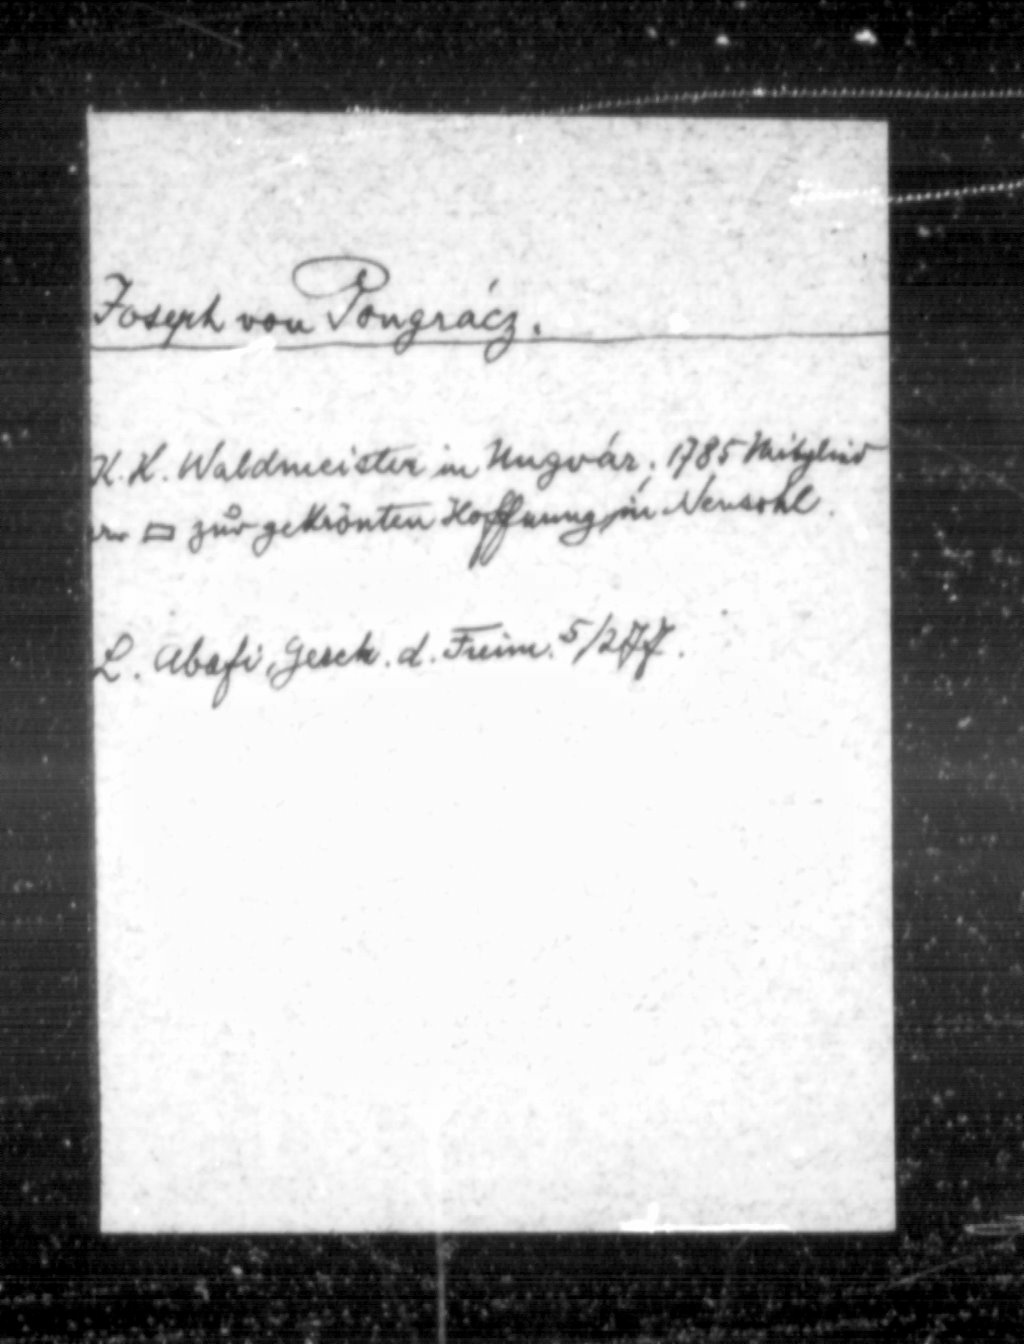 Joseph von Pongrácz.
K. K. Waldmeister in Ungvár, 1785 Mitglied
der ▭ zur gekrönten Hoffnung in Neusohl.
L. Abafi, Gesch. d. Freim. 5/277.